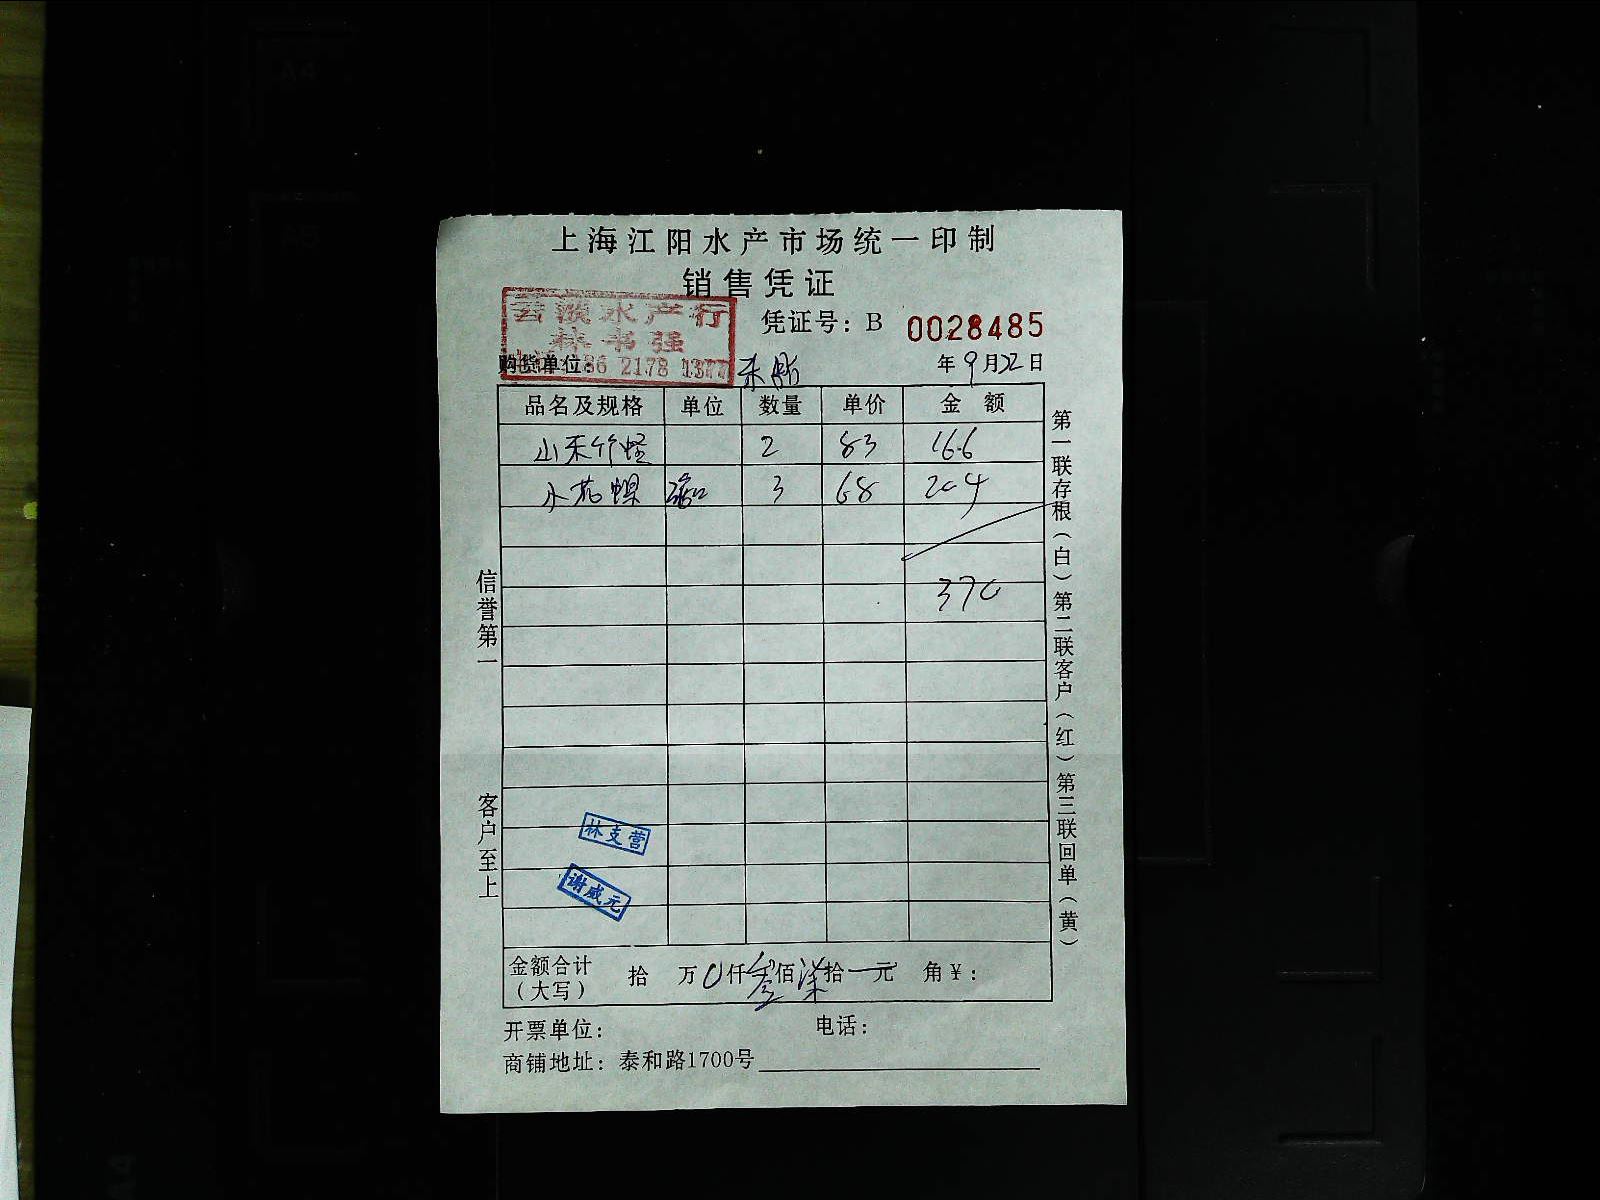 上海江阳水产市场统一印制
销售凭证
水产行
林书强
186 2178 1377
凭证号：B 0028485
购货单位：
年9月22日
品名及规格 单位 数量 单价 金额
山东竹蛏 2 83 166
小花螺 3 68 204
370
信誉第一
客户至上
林支营
谢威元
第一联存根（白）第二联客户（红）第三联回单（黄）
金额合计（大写） 拾 万 0 仟 叁 佰 柒 拾 元 角 ¥：
开票单位： 电话：
商铺地址：泰和路1700号